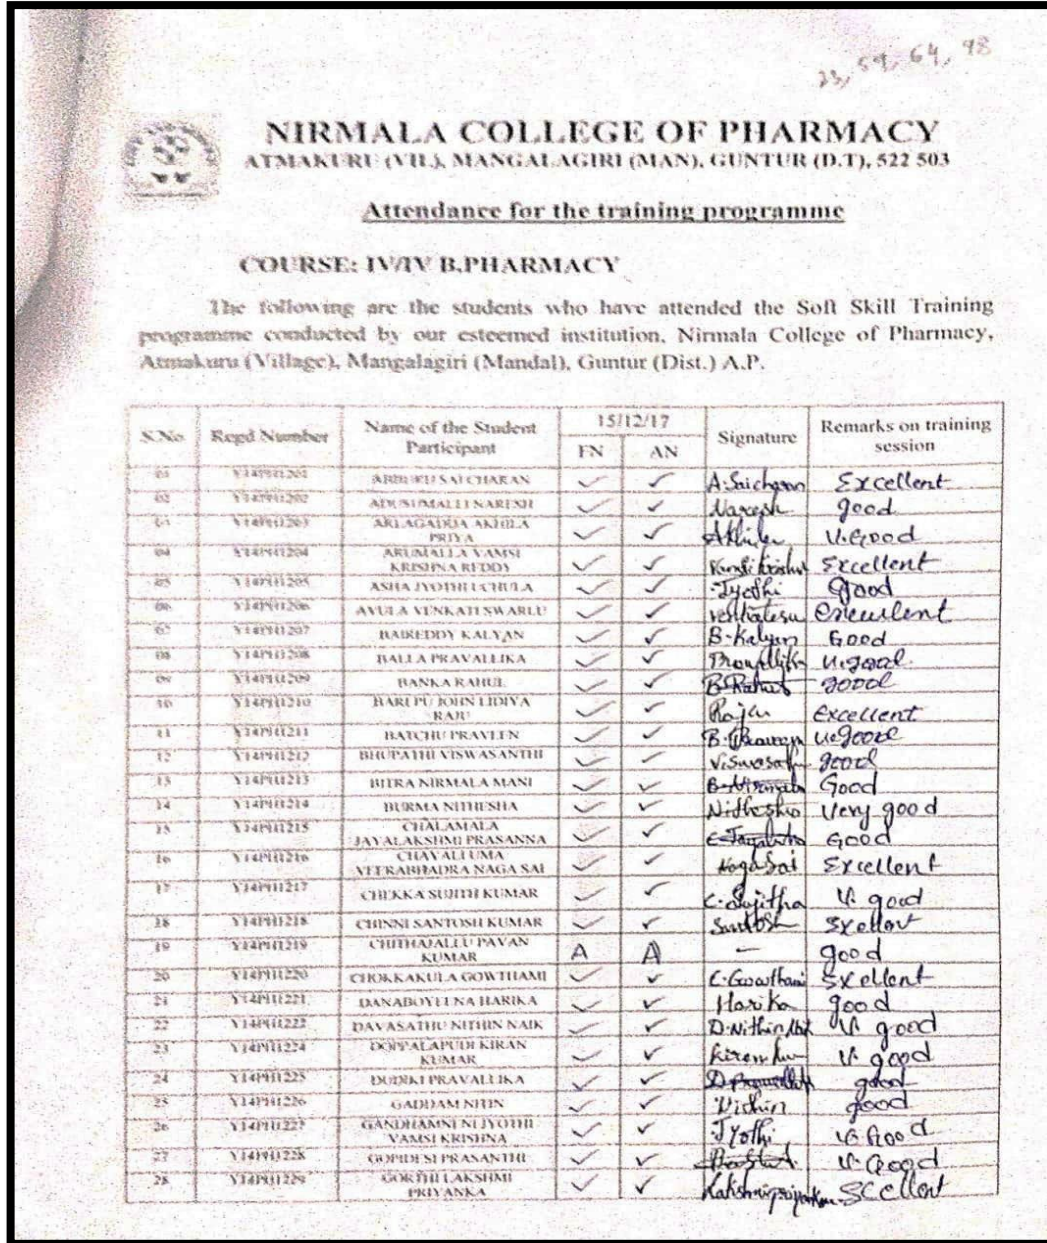 23, 59, 64, 98
NIRMALA COLLEGE OF PHARMACY
ATMAKURU (VIL), MANGALAGIRI (MAN), GUNTUR (D.T), 522 503
Attendance for the training programme
COURSE: IV/IV B.PHARMACY
The following are the students who have attended the Soft Skill Training
programme conducted by our esteemed institution, Nirmala College of Pharmacy,
Atmakuru (Village), Mangalagiri (Mandal), Guntur (Dist.) A.P.
S.No Regd Number Name of the Student Participant 15/12/17 FN AN Signature Remarks on training session
01 Y14PH1201 SAI CHARAN ✓ ✓ A.Saicharan Excellent
02 Y14PH1202 ADUSUMALLI NARESH ✓ ✓ Naresh good
03 Y14PH1203 AKHILA PRIYA ✓ ✓ Akhila V.Good
04 Y14PH1204 ARUMALLA VAMSI KRISHNA REDDY ✓ ✓ Excellent
05 Y14PH1205 ASHA JYOTHI UCHULA ✓ ✓ Jyothi Good
06 Y14PH1206 AVULA VENKATESWARLU ✓ ✓ Venkatesu
07 Y14PH1207 BAIREDDY KALYAN ✓ ✓ B.Kalyan Good
08 Y14PH1208 BALLA PRAVALLIKA ✓ ✓ V.good
09 Y14PH1209 BANKA RAHUL ✓ ✓ B.Rahul good
10 Y14PH1210 JOHN LIDIYA RAJU ✓ ✓ Raju Excellent
11 Y14PH1211 BATCHU PRAVEEN ✓ ✓ B.Praveen V.good
12 Y14PH1212 BHUPATHI VISWASANTHI ✓ ✓ good
13 Y14PH1213 BITRA NIRMALA MANI ✓ ✓ B.Nirmala Good
14 Y14PH1214 BURMA NITHESHA ✓ ✓ Nithesha Very good
15 Y14PH1215 CHALAMALA JAYALAKSHMI PRASANNA ✓ ✓ Good
16 Y14PH1216 CHAVALI UMA VEERABHADRA NAGA SAI ✓ ✓ Naga Sai Excellent
17 Y14PH1217 CHEKKA SUJITH KUMAR ✓ ✓ C.Sujitha V.good
18 Y14PH1218 CHINNI SANTOSH KUMAR ✓ ✓ Santosh
19 Y14PH1219 CHITHAJALLU PAVAN KUMAR A A – good
20 Y14PH1220 CHOKKAKULA GOWTHAMI ✓ ✓ C.Gowthami Exellent
21 Y14PH1221 DANABOYEENA HARIKA ✓ ✓ Harika good
22 Y14PH1222 DAVASATHU NITHIN NAIK ✓ ✓ D.Nithin V.good
23 Y14PH1224 DOPPALAPUDI KIRAN KUMAR ✓ ✓ V.good
24 Y14PH1225 DUDIKI PRAVALLIKA ✓ ✓ good
25 Y14PH1226 GADDAM NITIN ✓ ✓ good
26 Y14PH1227 JYOTHI VAMSI KRISHNA ✓ ✓ Jyothi V.Good
27 Y14PH1228 GOPIDESI PRASANTHI ✓ ✓ V.Good
28 Y14PH1229 GORTHI LAKSHMI PRIYANKA ✓ ✓ Lakshmipriyanka